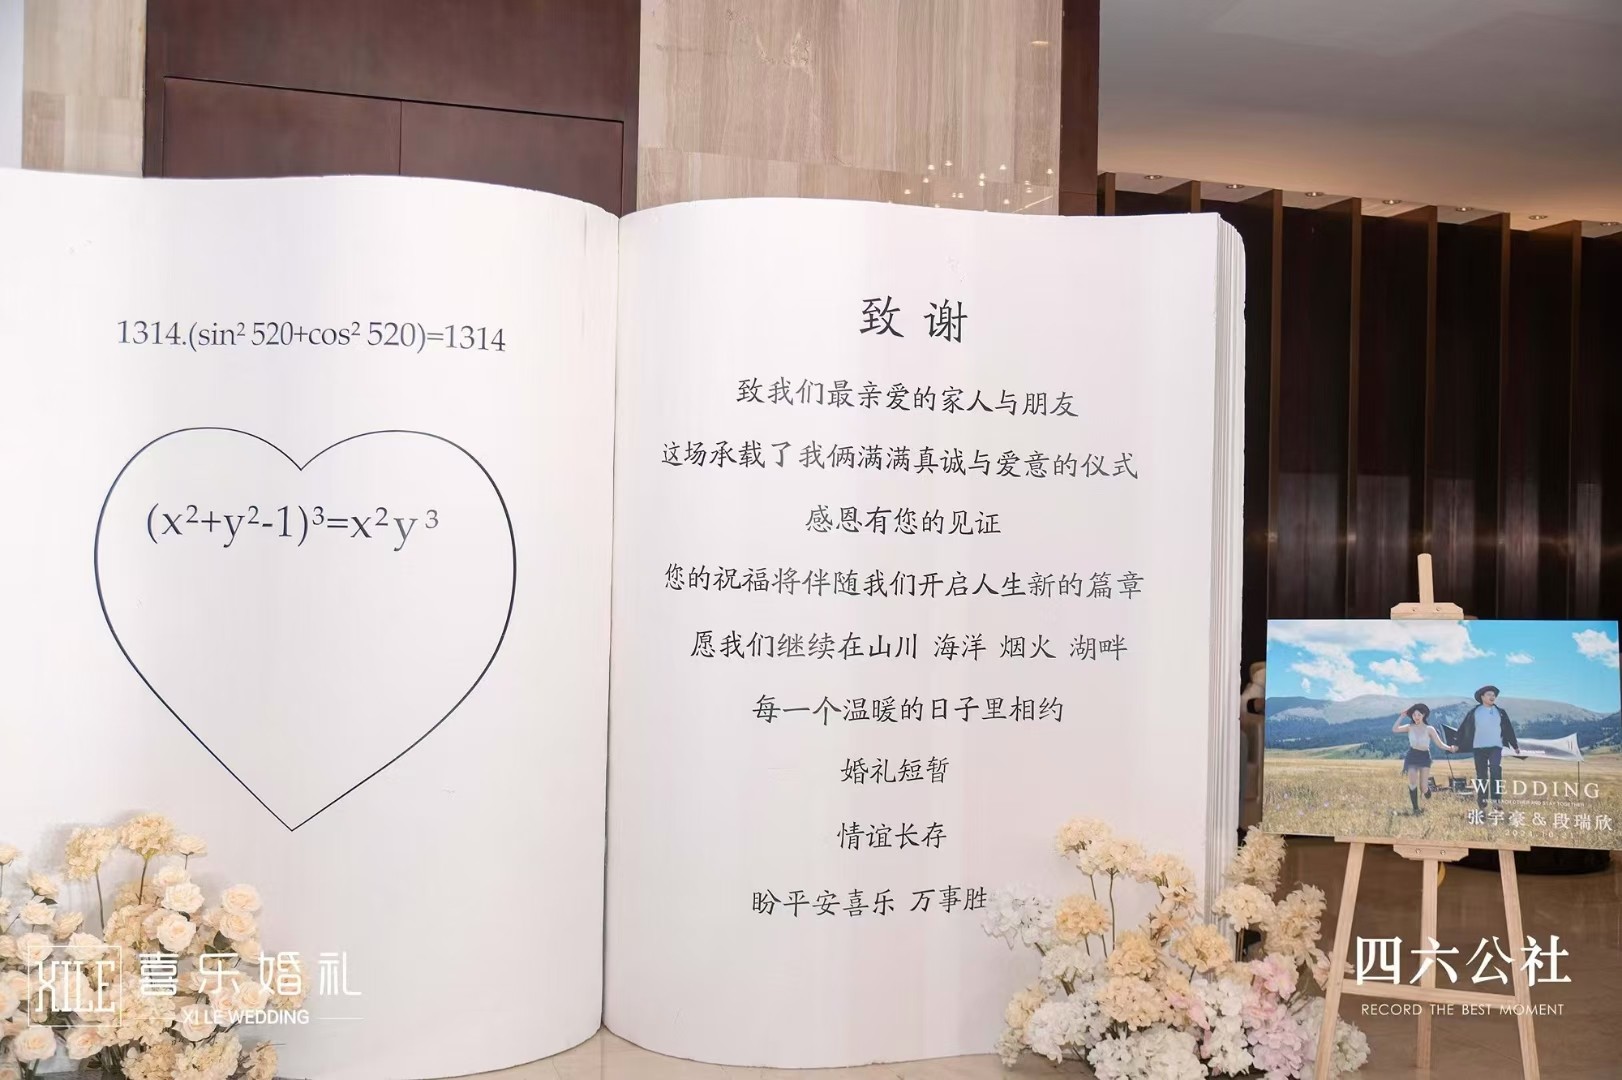 1314.(sin² 520+cos² 520)=1314
(x²+y²-1)³=x²y³
致谢
致我们最亲爱的家人与朋友
这场承载了我俩满满真诚与爱意的仪式
感恩有您的见证
您的祝福将伴随我们开启人生新的篇章
愿我们继续在山川 海洋 烟火 湖畔
每一个温暖的日子里相约
婚礼短暂
情谊长存
盼平安喜乐 万事胜
WEDDING
张宇豪&段瑞欣
XILE
喜乐婚礼
XI LE WEDDING
四六公社
RECORD THE BEST MOMENT